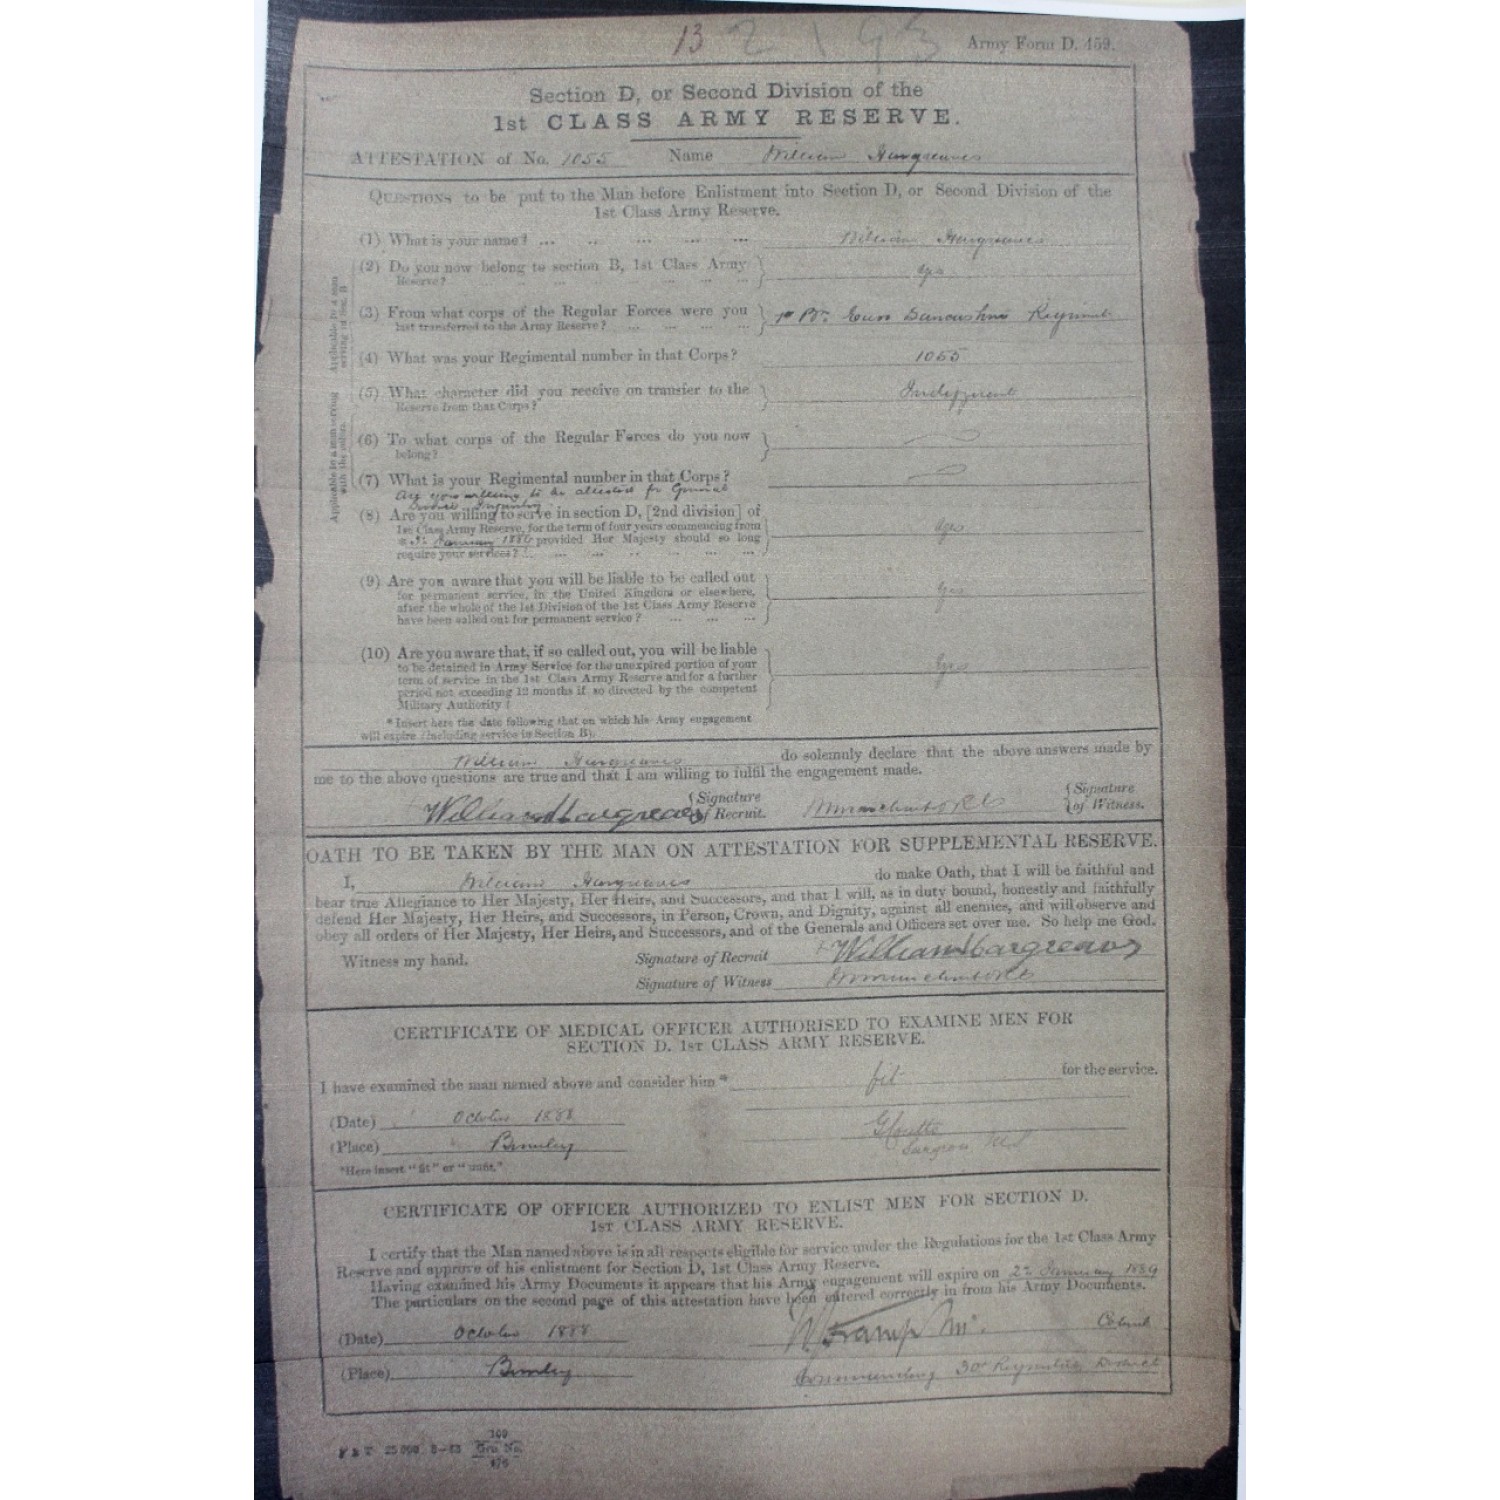 13 2193 Army Form D. 459.
Section D, or Second Division of the
1st CLASS ARMY RESERVE.
ATTESTATION of No. 1055 Name William Hargreaves
QUESTIONS to be put to the Man before Enlistment into Section D, or Second Division of the
1st Class Army Reserve.
(1) What is your name? ... .. ... ... ... William Hargreaves
(2) Do you now belong to section B, 1st Class Army
Reserve? ... ... ... ... ... yes
(3) From what corps of the Regular Forces were you
last transferred to the Army Reserve? ... ... ... ... 1st Bn. East Lancashire Regiment
(4) What was your Regimental number in that Corps? 1055
(5) What character did you receive on transfer to the
Reserve from that Corps? Indifferent
Applicable to a man
serving in Sec. B
(6) To what corps of the Regular Forces do you now
belong?
(7) What is your Regimental number in that Corps?
Applicable to a man serving
with the colors.
Are you willing to be attested for General
Service Infantry
(8) Are you willing to serve in section D, [2nd division] of
1st Class Army Reserve, for the term of four years commencing from
* January provided Her Majesty should so long
require your services? ... ... ... ... ... yes
(9) Are you aware that you will be liable to be called out
for permanent service, in the United Kingdom or elsewhere,
after the whole of the 1st Division of the 1st Class Army Reserve
have been called out for permanent service? ... ... ... yes
(10) Are you aware that, if so called out, you will be liable
to be detained in Army Service for the unexpired portion of your
term of service in the 1st Class Army Reserve and for a further
period not exceeding 12 months if so directed by the competent
Military Authority? yes
*Insert here the date following that on which his Army engagement
will expire (including service in Section B).
William Hargreaves do solemnly declare that the above answers made by
me to the above questions are true and that I am willing to fulfil the engagement made.
William Hargreaves {Signature of Recruit. {Signature of Witness.
OATH TO BE TAKEN BY THE MAN ON ATTESTATION FOR SUPPLEMENTAL RESERVE.
I, William Hargreaves do make Oath, that I will be faithful and
bear true Allegiance to Her Majesty, Her Heirs, and Successors, and that I will, as in duty bound, honestly and faithfully
defend Her Majesty, Her Heirs, and Successors, in Person, Crown, and Dignity, against all enemies, and will observe and
obey all orders of Her Majesty, Her Heirs, and Successors, and of the Generals and Officers set over me. So help me God.
Witness my hand. Signature of Recruit William Hargreaves
Signature of Witness
CERTIFICATE OF MEDICAL OFFICER AUTHORISED TO EXAMINE MEN FOR
SECTION D. 1ST CLASS ARMY RESERVE.
I have examined the man named above and consider him * fit for the service.
(Date) October 1888
(Place) Burnley Surgeon
*Here insert "fit" or "unfit."
CERTIFICATE OF OFFICER AUTHORIZED TO ENLIST MEN FOR SECTION D.
1ST CLASS ARMY RESERVE.
I certify that the Man named above is in all respects eligible for service under the Regulations for the 1st Class Army
Reserve and approve of his enlistment for Section D, 1st Class Army Reserve.
Having examined his Army Documents it appears that his Army engagement will expire on 2nd January 1889
The particulars on the second page of this attestation have been entered correctly in from his Army Documents.
(Date) October 1888 Colonel
(Place) Burnley Commanding 30th Regimental District